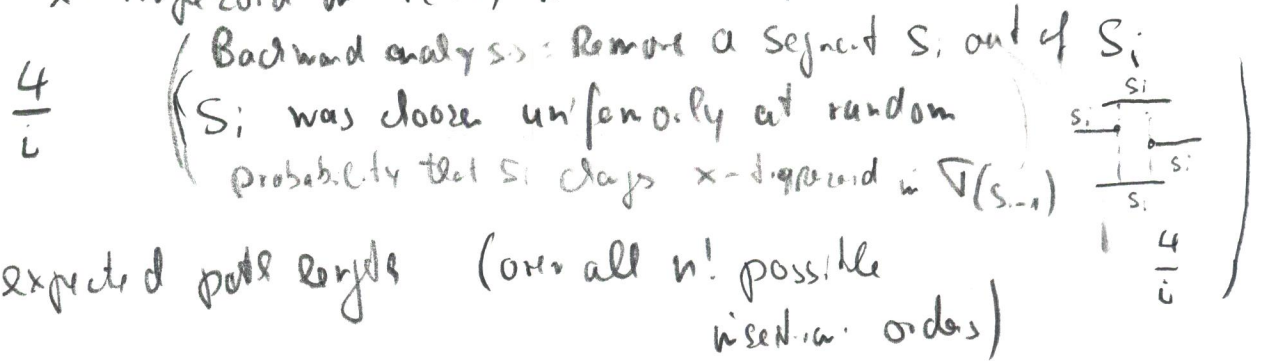 Backward analysis: Remove a segment Si out of Si
4/i
Si was choosen uniformly at random
probability that Si changes x-trapezoid in T(Si-1)
si
si
si
si
4/i
expected path length (over all n! possible
insertion orders)